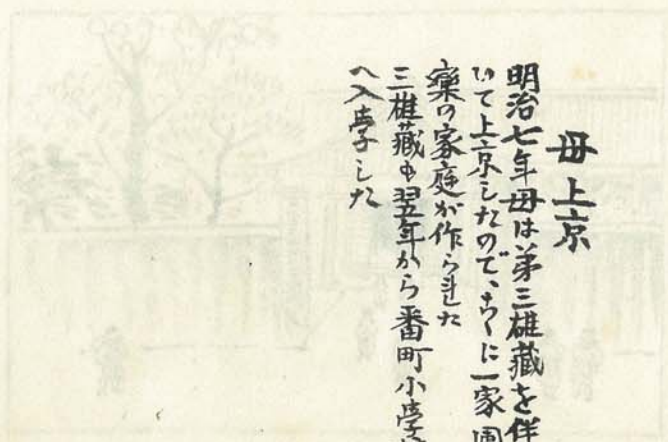 母上京
明治七年母は弟三雄藏を伴
いて上京したので、こゝに一家團
欒の家庭が作られた
三雄藏も翌年から番町小學校
へ入學した